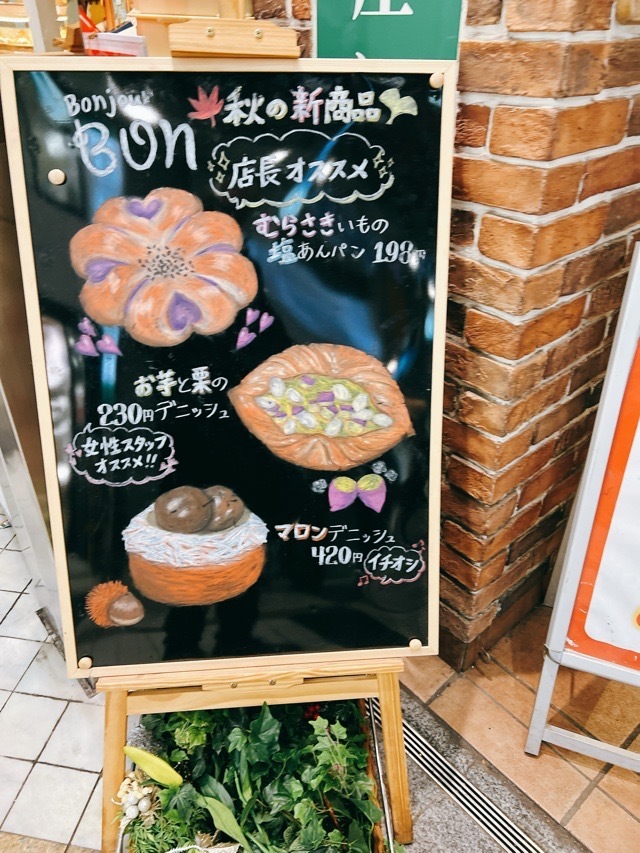 Bonjour
BON
秋の新商品
店長オススメ
むらさきいもの
塩あんパン 198円
お芋と栗の
230円デニッシュ
女性スタッフ
オススメ!!
マロンデニッシュ
420円 イチオシ